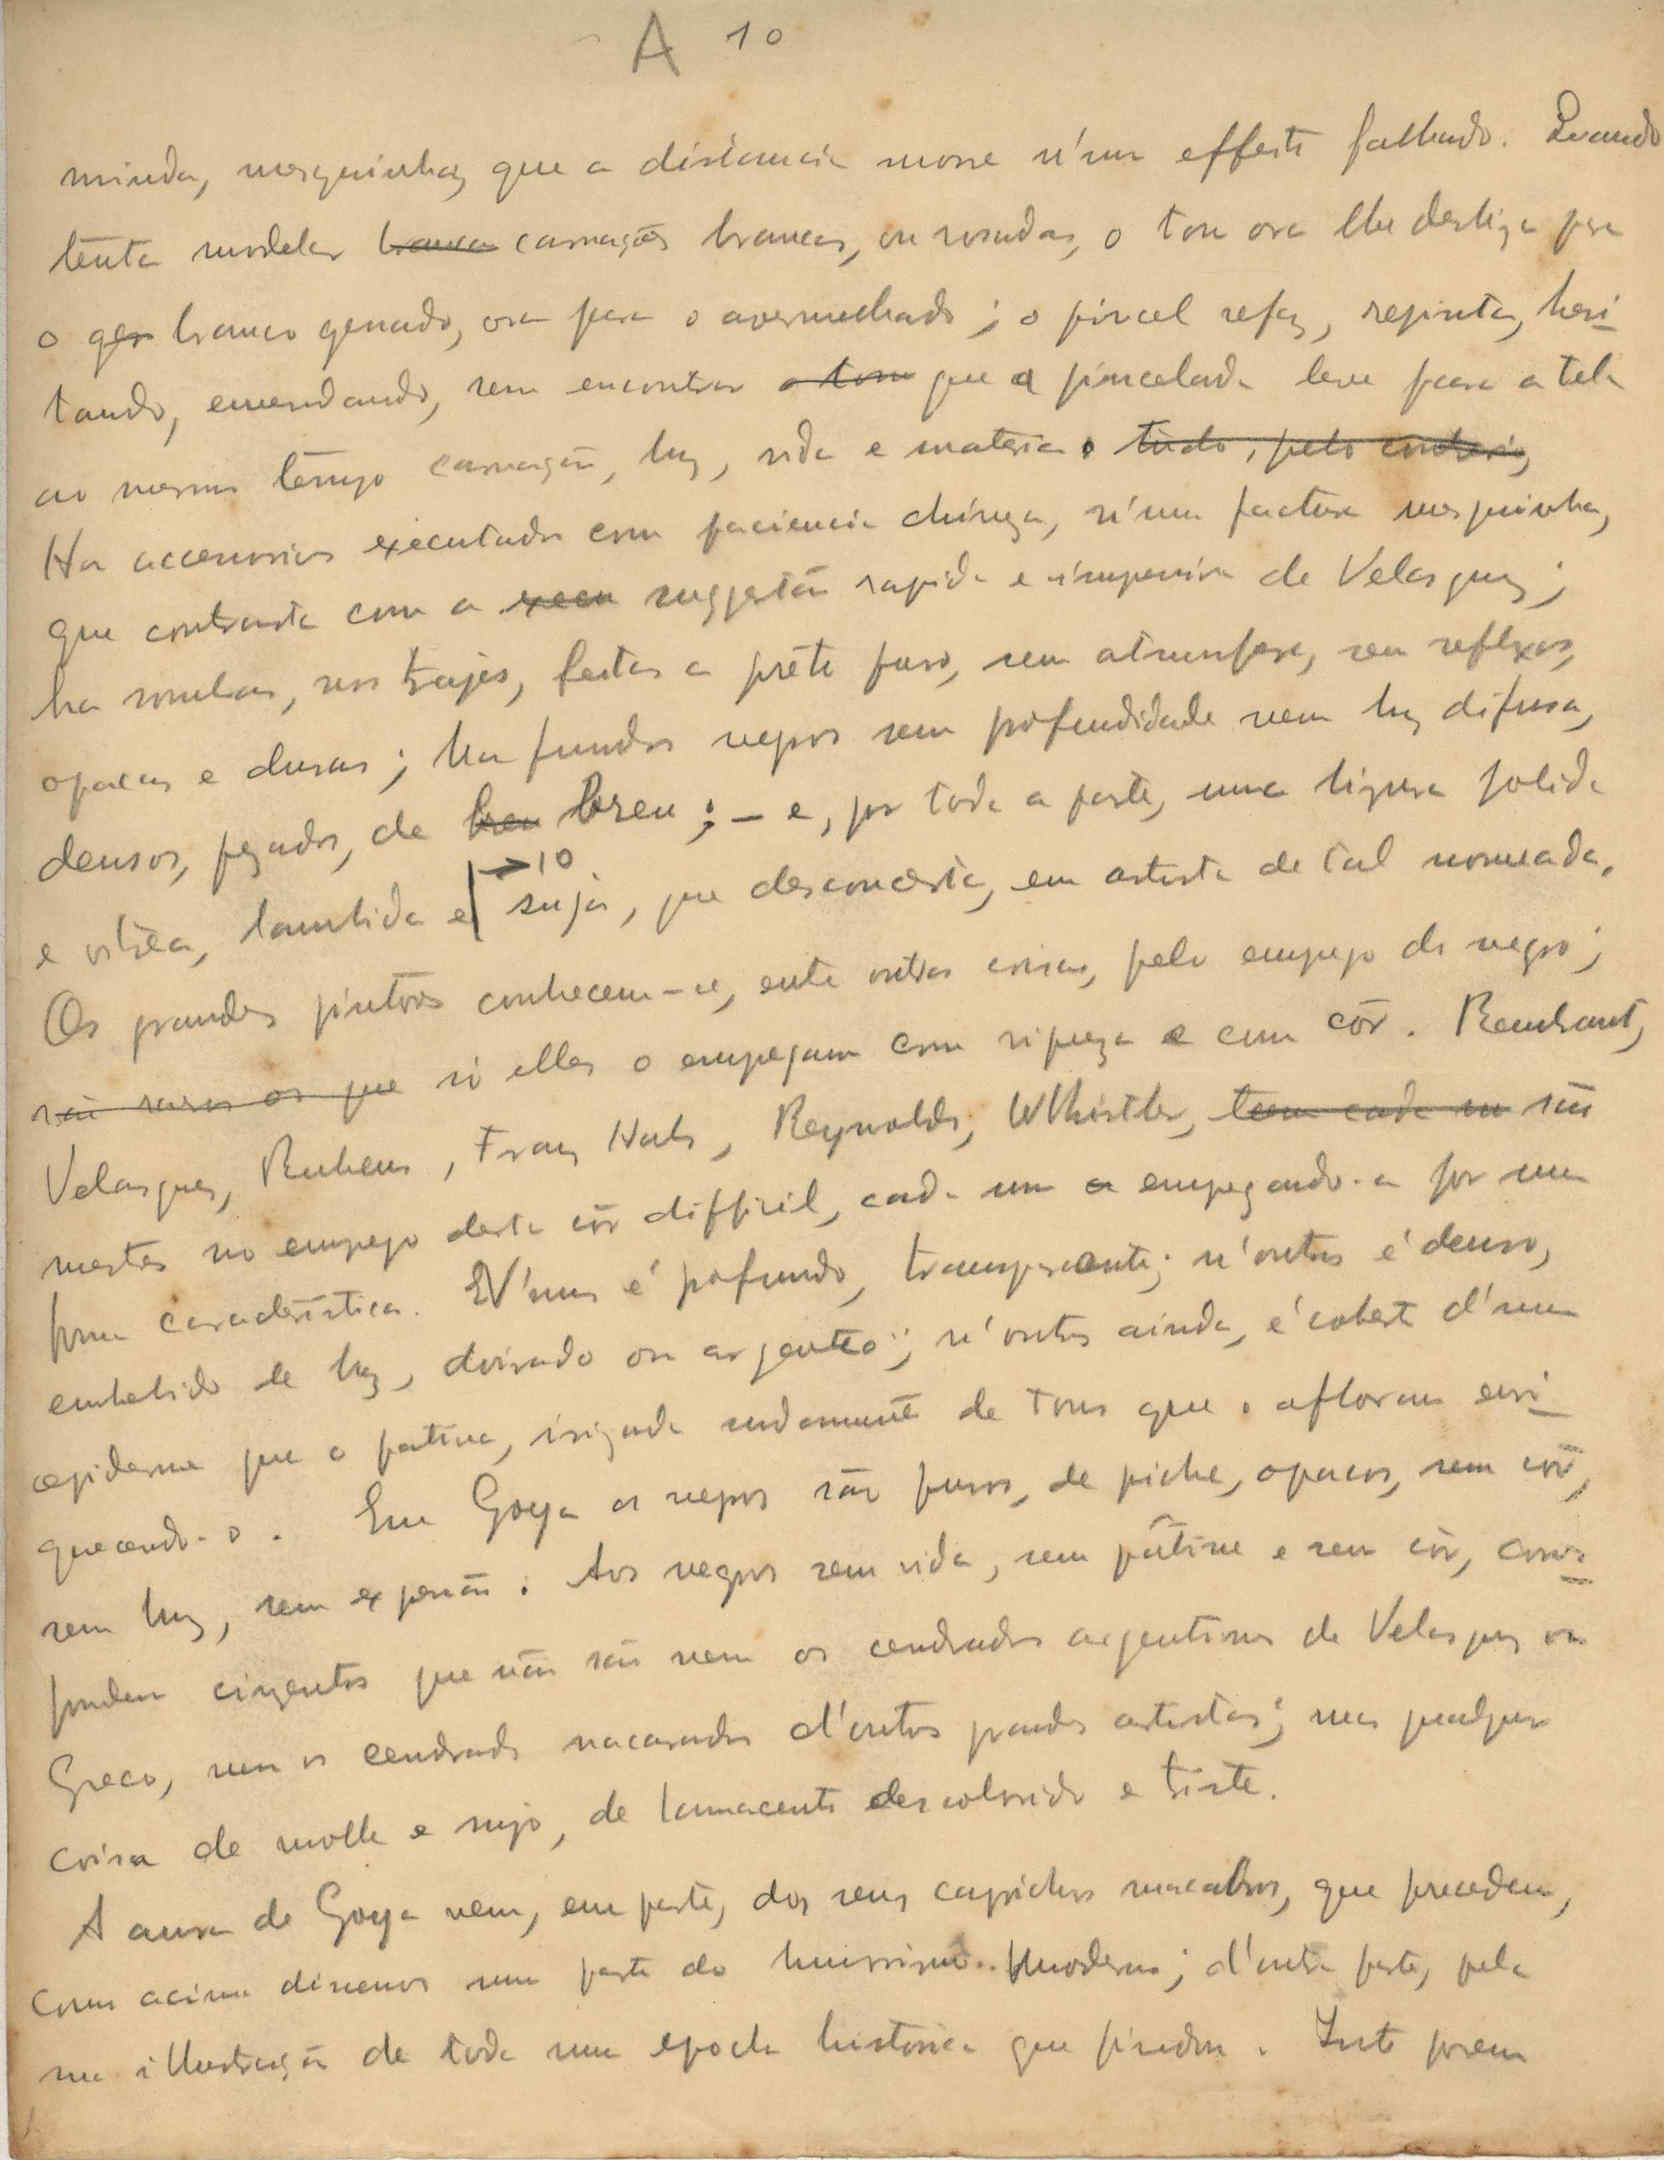 A 10
miuda, mesquinha, que a distancia morre n'um effeito falhado. Quando
tenta modelar branca carnações brancas, ou rosadas, o tom ora lhe deslisa para
o ges branco gessado, ora para o avermelhado; o pincel refaz, repinta, hesi-
tando, emendando, sem encontrar o tom que a pincelada leve para a tela
ao mesmo tempo carnação, luz, vida e materia. tudo, pelo contrario,
Ha accessorios executados com paciencia chineza, n'uma factura mesquinha,
que contrasta com a execu suggestão rapida e impressiva de Velasquez;
ha sombras, nos trajes, feitas a prêto puro, sem atmosfera, sem reflexos,
opacas e duras; ha fundos negros sem profundidade nem luz difusa,
densos, pezados, de breu breu; – e, por toda a parte, uma lizura solida
e vitrea, lambida e →10 suja, que desconcerta, em artista de tal nomeada.
Os grandes pintores conhecem-se, entre outras coisas, pelo emprego do negro;
são raros os que só elles o empregam com riqueza e com côr. Rembrant,
Velasques, Rubens, Franz Hals, Reynolds, Whistler, teem cada um são
mestres no emprego desta côr difficil, cada um a empregando-a por uma
forma caracteristica. N'uns é profundo, transparente; n'outros é denso,
embebido de luz, doirado ou argenteo; n'outros ainda, é coberto d'uma
epiderme que o patina, irizada sudamente de tons que o afloram enri-
quecendo-o. Em Goya os negros são puros, de piche, opacos, sem côr,
sem luz, sem expressão. Aos negros sem vida, sem pâtine e sem côr, corres-
pondem cinzentos que não são nem os cendrados argentinos de Velasquez ou
Greco, nem os cendrados nacarados d'outros grandes artistas; mas qualquer
coisa de molle e sujo, de lamacento descolorido e triste.
A aura de Goya vem, em parte, dos seus caprichos macabros, que precedem,
como acima dissemos uma parte do humorismo moderno; d'outra parte, pela
sua illustração de toda uma epocha historica que pintou. Isto porem